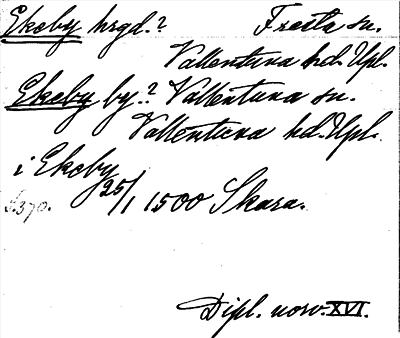 Ekeby hrgd.? Fresta sn.
Vallentuna hd. Upl.
Ekeby by.? Vallentuna sn.
Vallentuna hd. Upl.
i Ekeby
s. 370. 25/1 1500 Skara.
Dipl. norv. XVI.